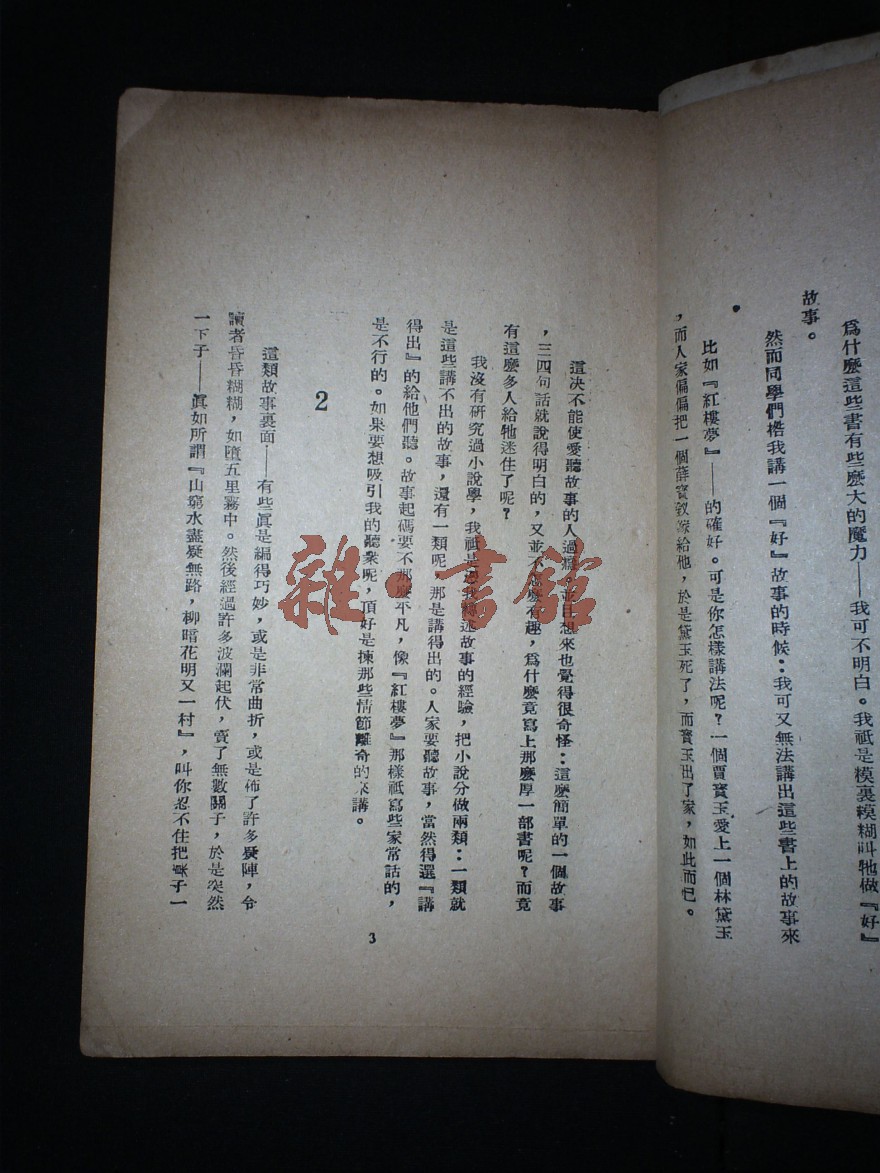 爲什麽這些書有些麽大的魔力——我可不明白。我祗是模裏糢糊叫牠做『好』
故事。
然而同學們楷我講一個『好』故事的時候：我可又無法講出這些書上的故事來
比如『紅樓夢』——的確好。可是你怎樣講法呢？一個賈寶玉愛上一個林黛玉
，而人家偏偏把一個薛寶釵嫁給他，於是黛玉死了，而寳玉出了家，如此而已。
這决不能使愛聽故事的人過癮。並且想來也覺得很奇怪：這麽簡單的一個故事
，三四句話就說得明白的，又並不怎麽有趣，爲什麽竟寫上那麽厚一部書呢？而竟
有這麽多人給牠迷住了呢？
我沒有研究過小說學，我祗是憑我轉述故事的經驗，把小說分做兩類：一類就
是這些講不出的故事，還有一類呢，那是講得出的。人家要聽故事，當然得選『講
得出』的給他們聽。故事起碼要不那麽平凡，像『紅樓夢』那樣祗寫些家常話的，
是不行的。如果要想吸引我的聽衆呢，頂好是揀那些情節離奇的來講。
2
這類故事裏面——有些眞是編得巧妙，或是非常曲折，或是佈了許多疑陣，令
讀者昏昏糊糊，如墮五里霧中。然後經過許多波瀾起伏，賣了無數關子，於是突然
一下子——眞如所謂『山窮水盡疑無路，柳暗花明又一村』，叫你忍不住把 子一
3
雜·書館